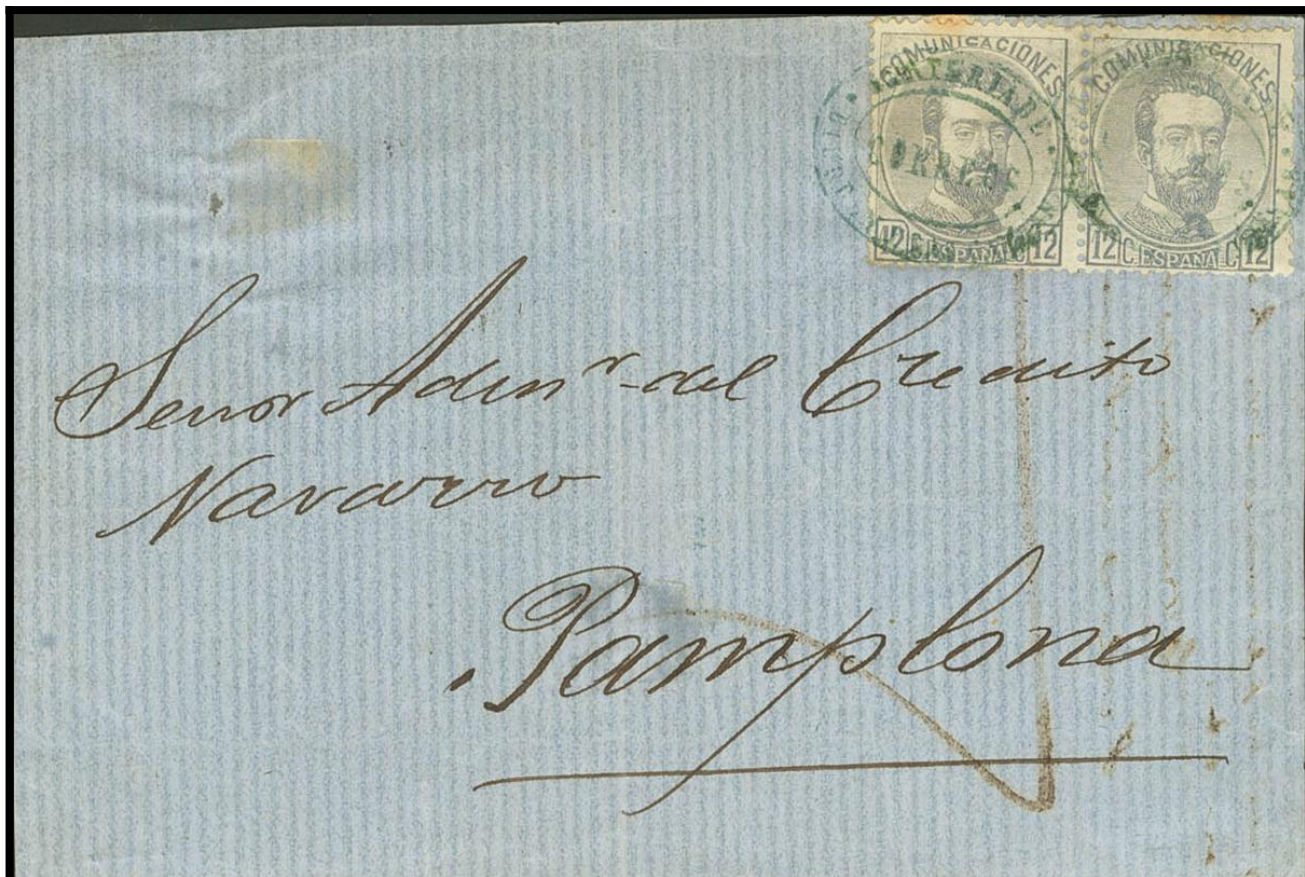 COMUNICACIONES
12 C. ESPAÑA C 12
COMUNICACIONES
12 C. ESPAÑA C 12
CARTERIA DE
CORREOS
Señor Admr. del Credito
Navarro
Pamplona